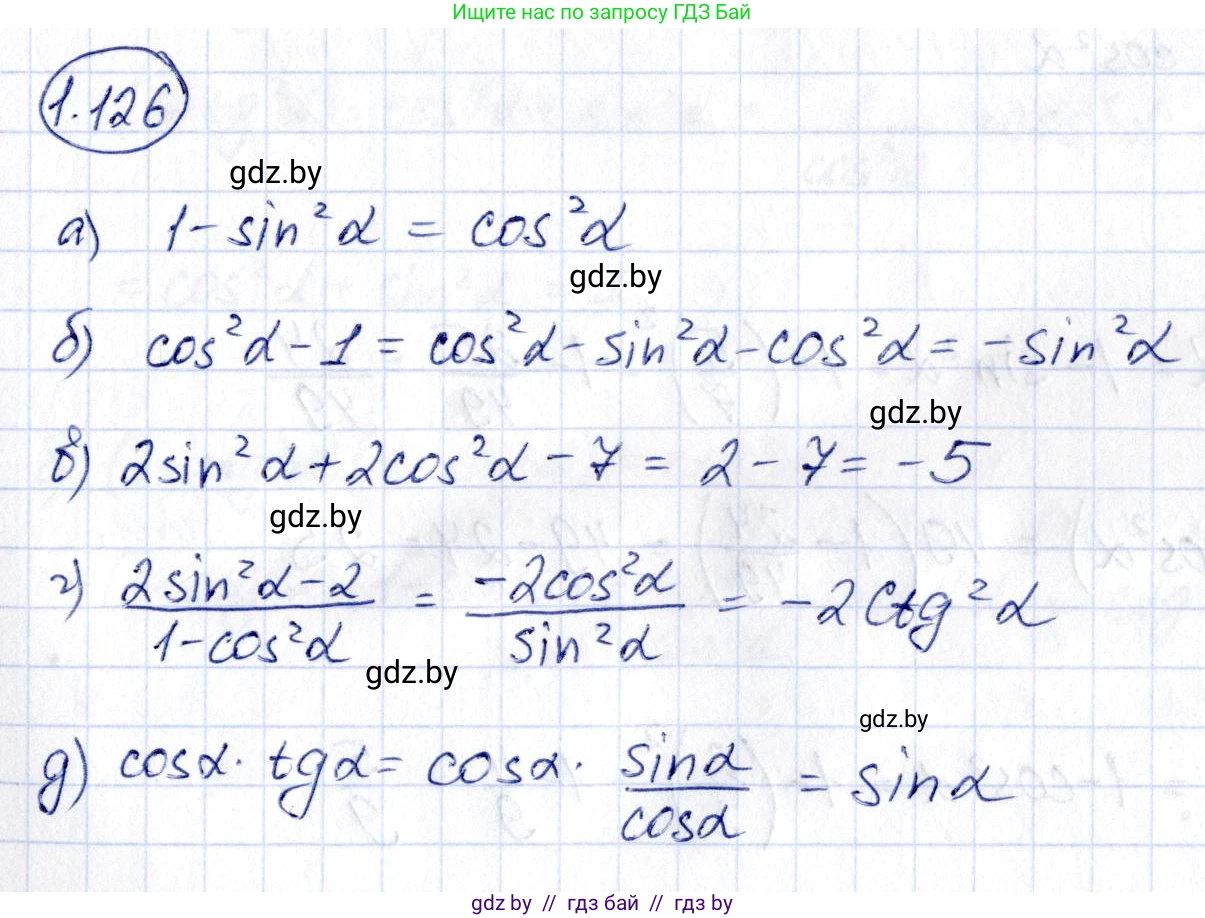 Ищите нас по запросу ГДЗ Бай
1.126
gdz.by
а) 1 - sin²α = cos²α
gdz.by
б) cos²α - 1 = cos²α - sin²α - cos²α = - sin²α
gdz.by
в) 2sin²α + 2cos²α - 7 = 2 - 7 = -5
gdz.by
г) (2sin²α - 2)/(1 - cos²α) = (-2cos²α)/(sin²α) = -2ctg²α
gdz.by
gdz.by
д) cosα · tgα = cosα · sinα/cosα = sinα
gdz.by // гдз бай // гдз by